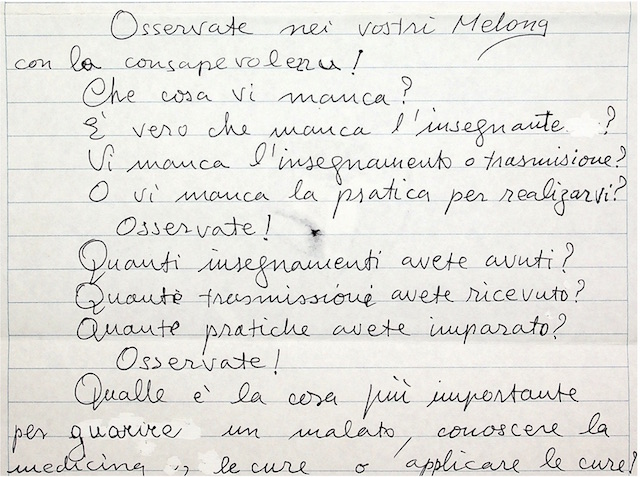 Osservate nei vostri Melong
con la consapevolezza!
Che cosa vi manca?
È vero che manca l'insegnante ?
Vi manca l'insegnamento o trasmisione?
O vi manca la pratica per realizarvi?
Osservate!
Quanti insegnamenti avete avuti?
Quante trasmissioni avete ricevuto?
Quante pratiche avete imparato?
Osservate!
Qualle è la cosa più importante
per guarire un malato, conoscere la
medicina, le cure o applicare le cure?